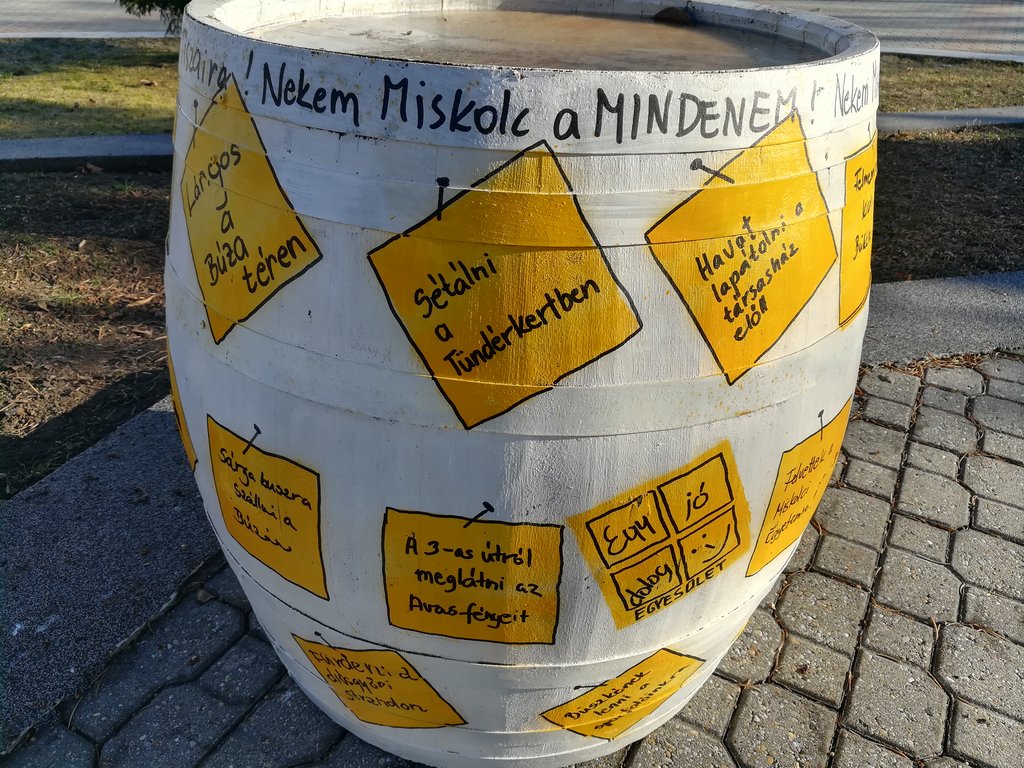 ! Nekem Miskolc a MINDENEM! Nekem
Lángos
a
Búza
téren
Sétálni
a
Tündérkertben
Havat
lapátolni a
társasház
előtt
Sárga buszra
szállni a
Búzán
A 3-as útról
meglátni az
Avas fényeit
Egy
jó
dolog
EGYESÜLET
Felvettek a
Miskolci
Egyetemre
fürdeni a
diósgyőri
strandon
Büszkének
lenni a